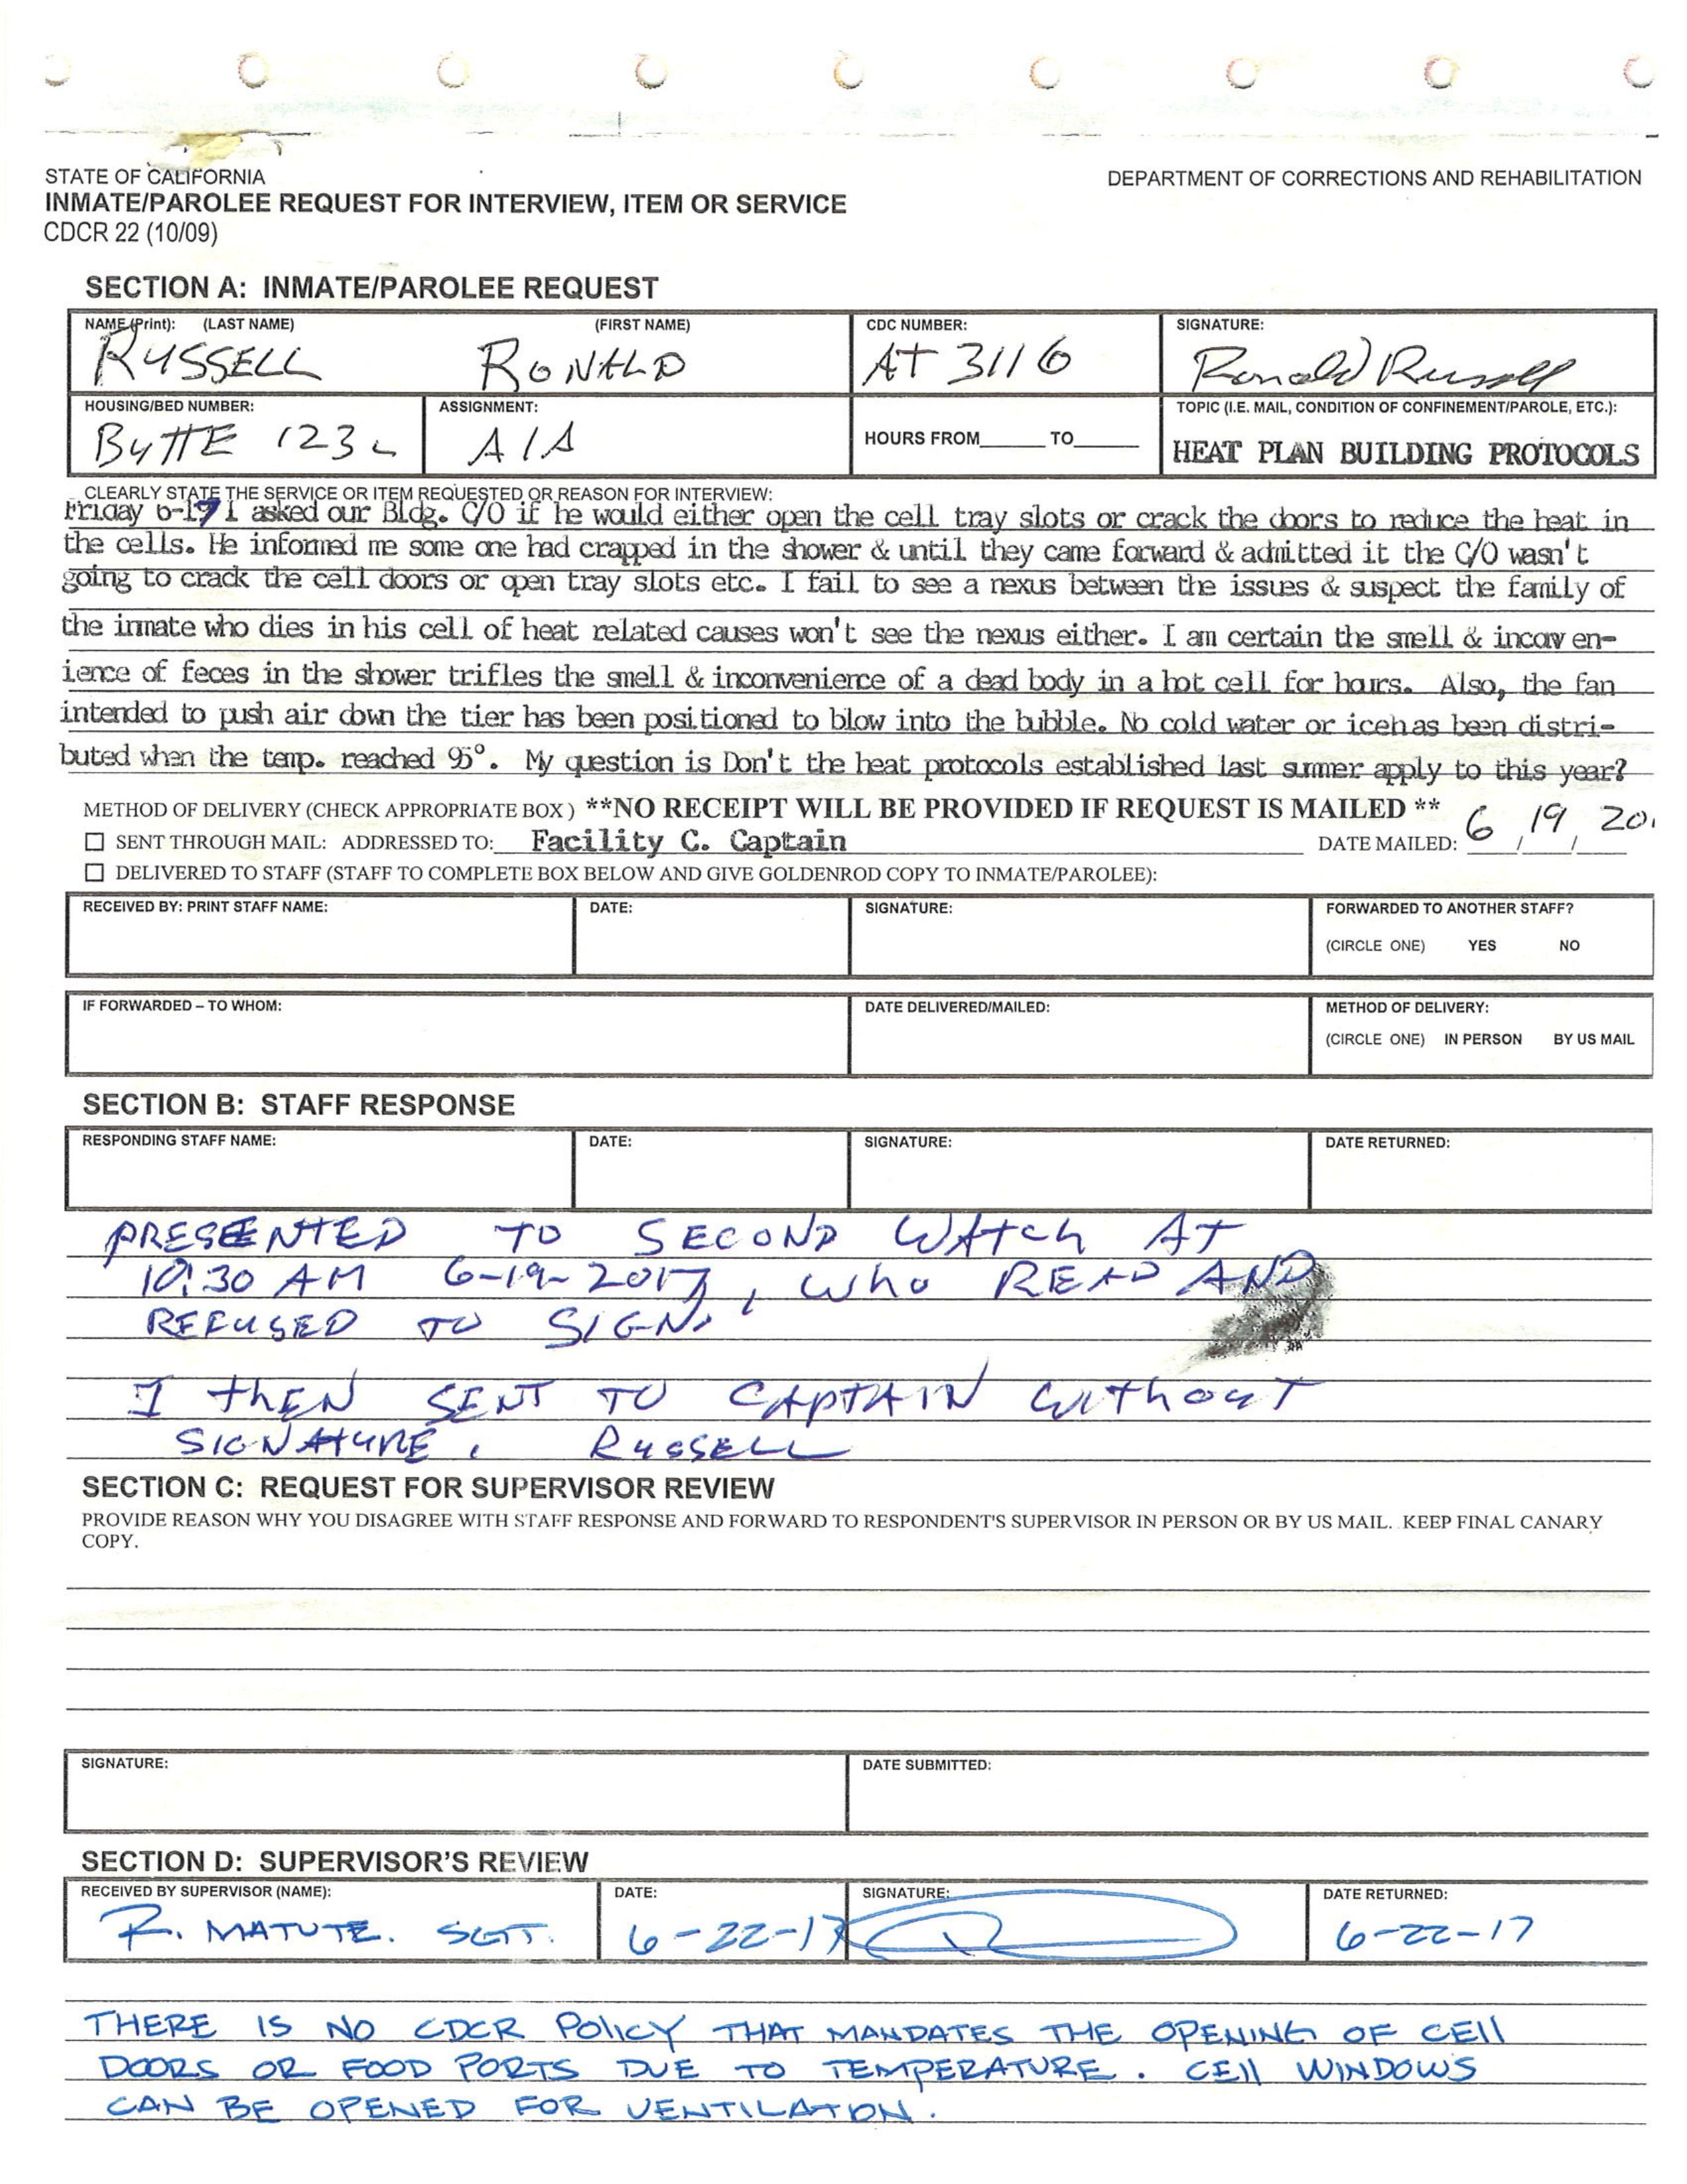 STATE OF CALIFORNIA
DEPARTMENT OF CORRECTIONS AND REHABILITATION
INMATE/PAROLEE REQUEST FOR INTERVIEW, ITEM OR SERVICE
CDCR 22 (10/09)
SECTION A: INMATE/PAROLEE REQUEST
NAME (Print): (LAST NAME) (FIRST NAME) CDC NUMBER: SIGNATURE:
RUSSELL RONALD AT 3116 Ronald Russell
HOUSING/BED NUMBER: ASSIGNMENT: HOURS FROM______ TO______ TOPIC (I.E. MAIL, CONDITION OF CONFINEMENT/PAROLE, ETC.):
BUTTE 123L A/A HEAT PLAN BUILDING PROTOCOLS
CLEARLY STATE THE SERVICE OR ITEM REQUESTED OR REASON FOR INTERVIEW:
Friday 6-17 I asked our Bldg. C/O if he would either open the cell tray slots or crack the doors to reduce the heat in
the cells. He informed me some one had crapped in the shower & until they came forward & admitted it the C/O wasn't
going to crack the cell doors or open tray slots etc. I fail to see a nexus between the issues & suspect the family of
the inmate who dies in his cell of heat related causes won't see the nexus either. I am certain the smell & inconven-
ience of feces in the shower trifles the smell & inconvenience of a dead body in a hot cell for hours. Also, the fan
intended to push air down the tier has been positioned to blow into the bubble. No cold water or icehas been distri-
buted when the temp. reached 95°. My question is Don't the heat protocols established last summer apply to this year?
METHOD OF DELIVERY (CHECK APPROPRIATE BOX) **NO RECEIPT WILL BE PROVIDED IF REQUEST IS MAILED **
☐ SENT THROUGH MAIL: ADDRESSED TO: Facility C. Captain DATE MAILED: 6 / 19 / 20
☐ DELIVERED TO STAFF (STAFF TO COMPLETE BOX BELOW AND GIVE GOLDENROD COPY TO INMATE/PAROLEE):
RECEIVED BY: PRINT STAFF NAME: DATE: SIGNATURE: FORWARDED TO ANOTHER STAFF?
(CIRCLE ONE) YES NO
IF FORWARDED – TO WHOM: DATE DELIVERED/MAILED: METHOD OF DELIVERY:
(CIRCLE ONE) IN PERSON BY US MAIL
SECTION B: STAFF RESPONSE
RESPONDING STAFF NAME: DATE: SIGNATURE: DATE RETURNED:
PRESENTED TO SECOND WATCH AT
10:30 AM 6-19-2017, WHO READ AND
REFUSED TO SIGN.
I THEN SENT TO CAPTAIN WITHOUT
SIGNATURE. RUSSELL
SECTION C: REQUEST FOR SUPERVISOR REVIEW
PROVIDE REASON WHY YOU DISAGREE WITH STAFF RESPONSE AND FORWARD TO RESPONDENT'S SUPERVISOR IN PERSON OR BY US MAIL. KEEP FINAL CANARY
COPY.
SIGNATURE: DATE SUBMITTED:
SECTION D: SUPERVISOR'S REVIEW
RECEIVED BY SUPERVISOR (NAME): DATE: SIGNATURE: DATE RETURNED:
R. MATUTE. SGT. 6-22-17 6-22-17
THERE IS NO CDCR POLICY THAT MANDATES THE OPENING OF CELL
DOORS OR FOOD PORTS DUE TO TEMPERATURE. CELL WINDOWS
CAN BE OPENED FOR VENTILATION.